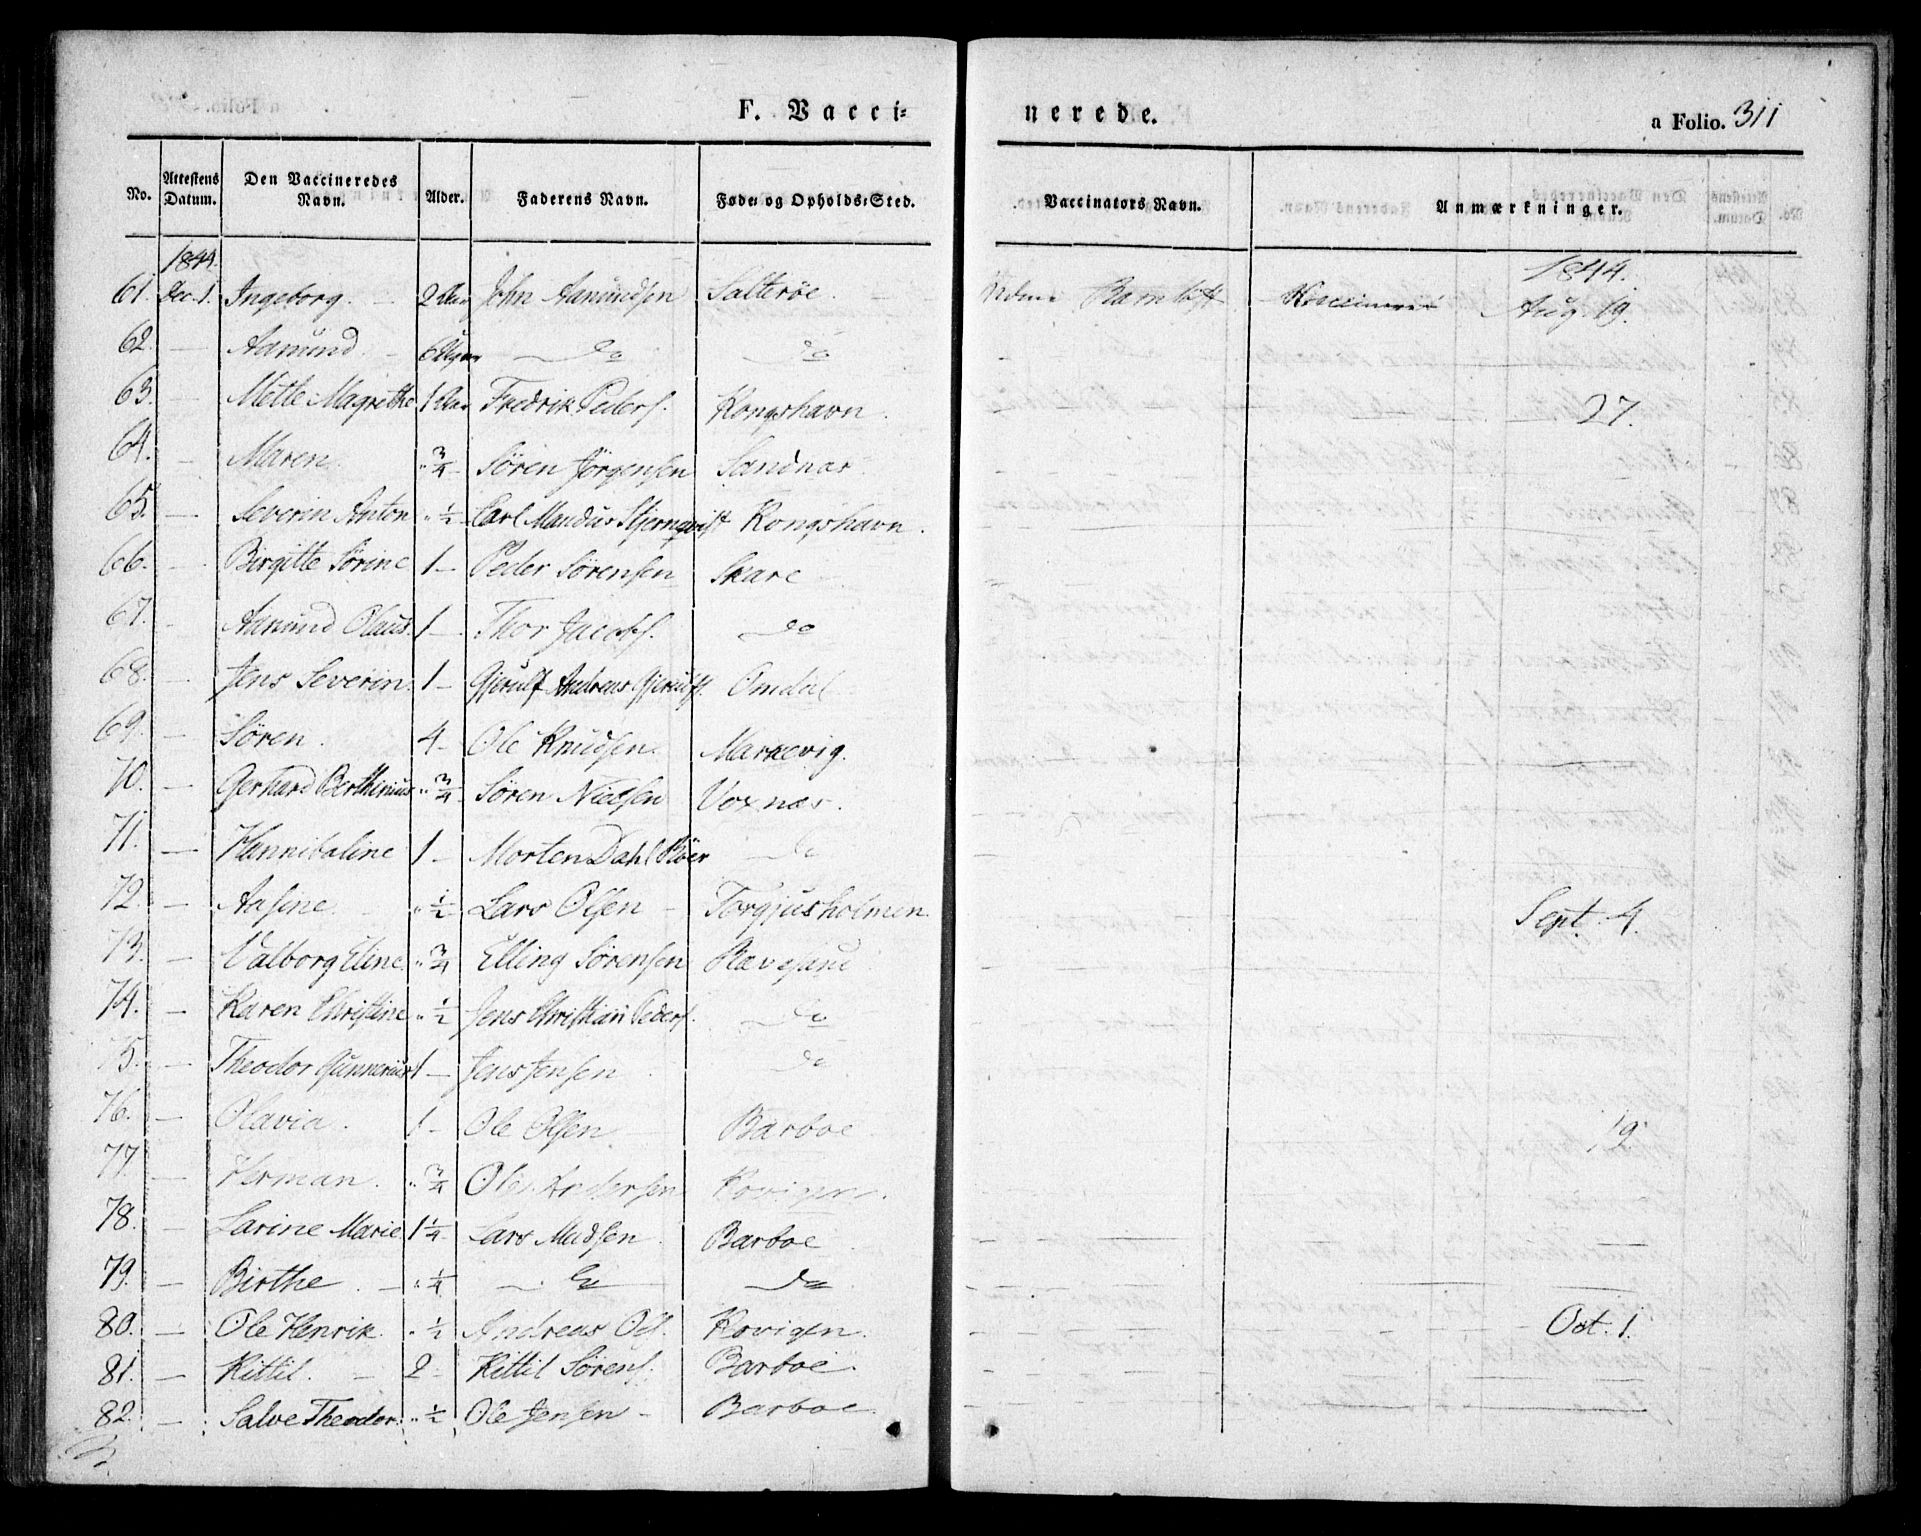 F. Vacci=
nerede.
a Folio. 311
No. Attestens Datum. Den Vaccineredes Navn. Alder. Faderens Navn. Føde= og Opholds=Sted. Vaccinators Navn. Anmærkninger.
1844. 1844.
61. Dec. 1. Ingeborg. 2 Aar John Aanundsen Salteröe. Vaccineret Aug. 19.
62. — Aanund — do do
63. — Mette Magrethe 1 Aar Fredrik Peders. Kongshavn. 27.
64. — Maren. " 3/4 - Sören Jörgensen Sandnæs
65. — Severin Anton " 1/2 - Carl Mandus Stjernqvist Kongshavn.
66. — Birgitte Sörine 1 - Peder Sörensen Skare
67. — Aanund Olaus. 1 - Thor Jacobs. do
68. — Jens Severin. 1 - Gjerulf Andreas Gjerulfs. Omdal
69. — Sören. 4 - Ole Knudsen. Markevig.
70. — Gerhard Berthinius " 3/4 - Sören Nielsen Voxnæs.
71. — Hannibaline 1 - Morten Dahl Röer do
72. — Aasene. " 1/2 - Lars Olsen - Torgjusholmen Sept. 4.
73. — Valborg Eline " 3/4 Elling Sörensen Rævesand
74. — Karen Christine " 1/2 Jens Christian Peders. do
75. — Theodor Gunnerius 1 - Jens Jensen do
76. — Olavia. 1 - Ole Olsen Barboe 12.
77. — Herman. " 3/4 Ole Andersen Kovigen.
78. — Larine Marie 1 1/4 - Lars Madsen. Barboe —
79. — Birthe. — " 1/4 — do — do —
80. — Ole Henrik. " 1/2 Andreas Ols. Kovigen. Oct. 1.
81. — Kittil. — 2 - Kittil Sörens. Barboe. —
82. — Salve Theodor. " 1/2 Ole Jensen - Barboe. —